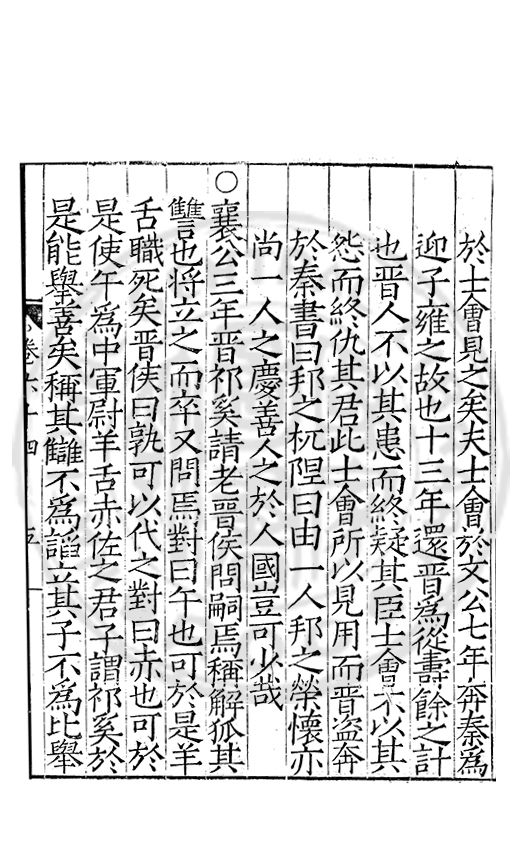 於士會見之矣夫士會於文公七年奔秦為
迎子雍之故也十三年還晉為從壽餘之計
也晉人不以其患而終疑其臣士會不以其
怨而終仇其君此士會所以見用而晉盜奔
於秦書曰邦之杌隉曰由一人邦之榮懷亦
尚一人之慶善人之於人國豈可少哉
○襄公三年晉祁奚請老晉侯問嗣焉稱解狐其
讐也將立之而卒又問焉對曰午也可於是羊
舌職死矣晉侯曰孰可以代之對曰赤也可於
是使午為中軍尉羊舌赤佐之君子謂祁奚於
是能舉善矣稱其讎不為謟立其子不為比舉
卷六十四 五